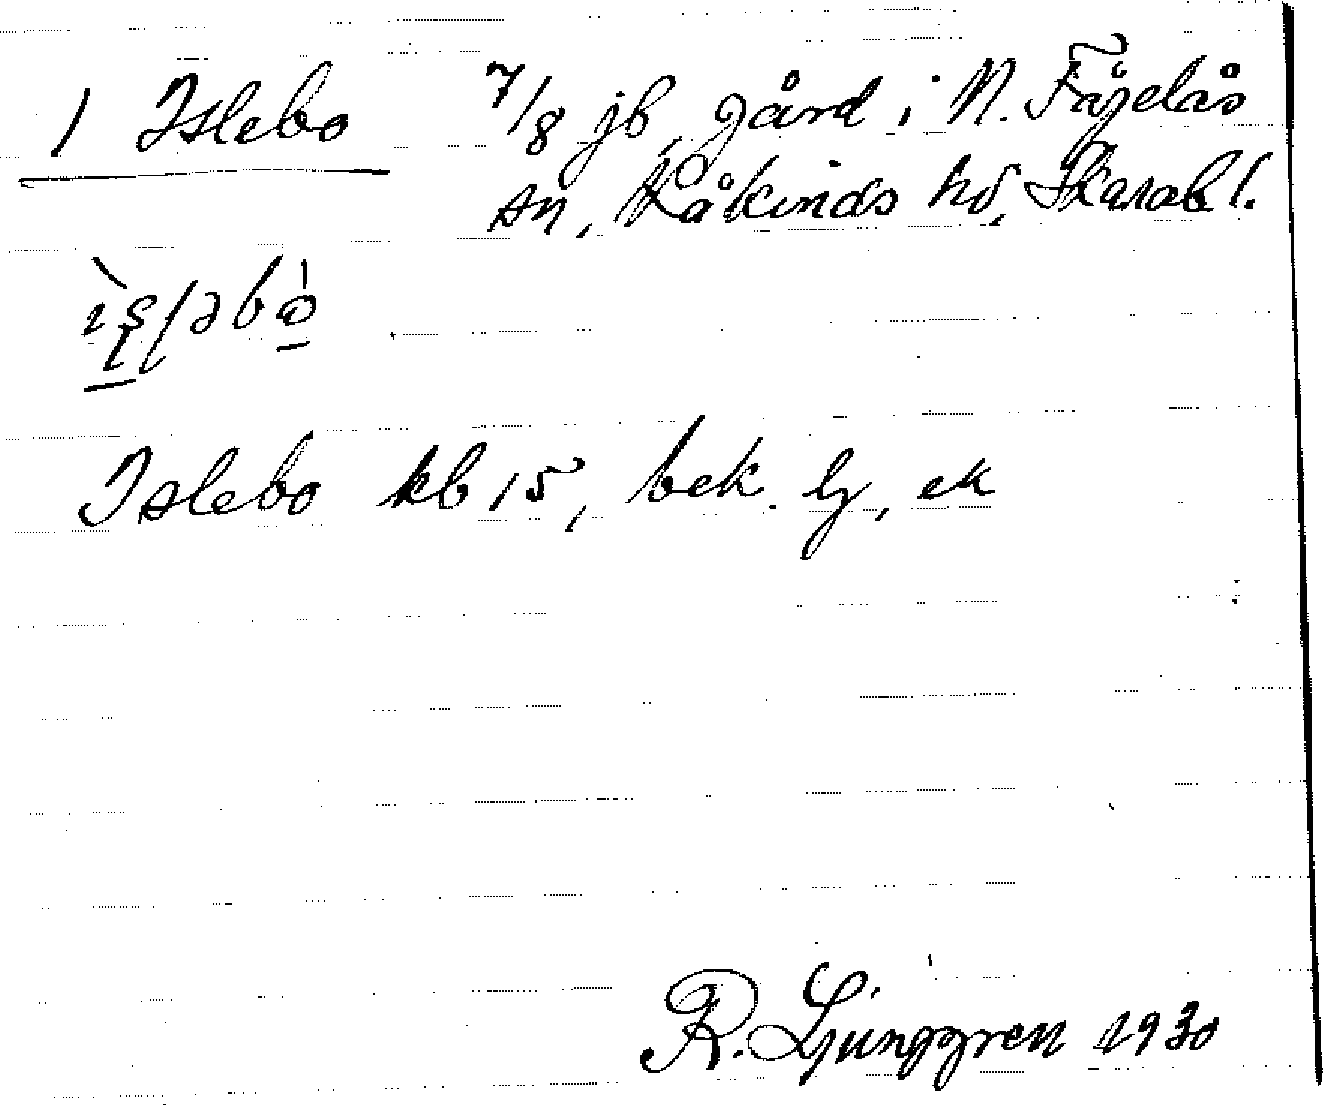 1 Islebo 7/8 jb, gård i N. Fågelås
sn, Kåkinds hd, Skarab l.
Islebo kb 15, bek. lj, ek
R. Ljunggren 1930